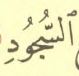 ٱلسُّجُودِ